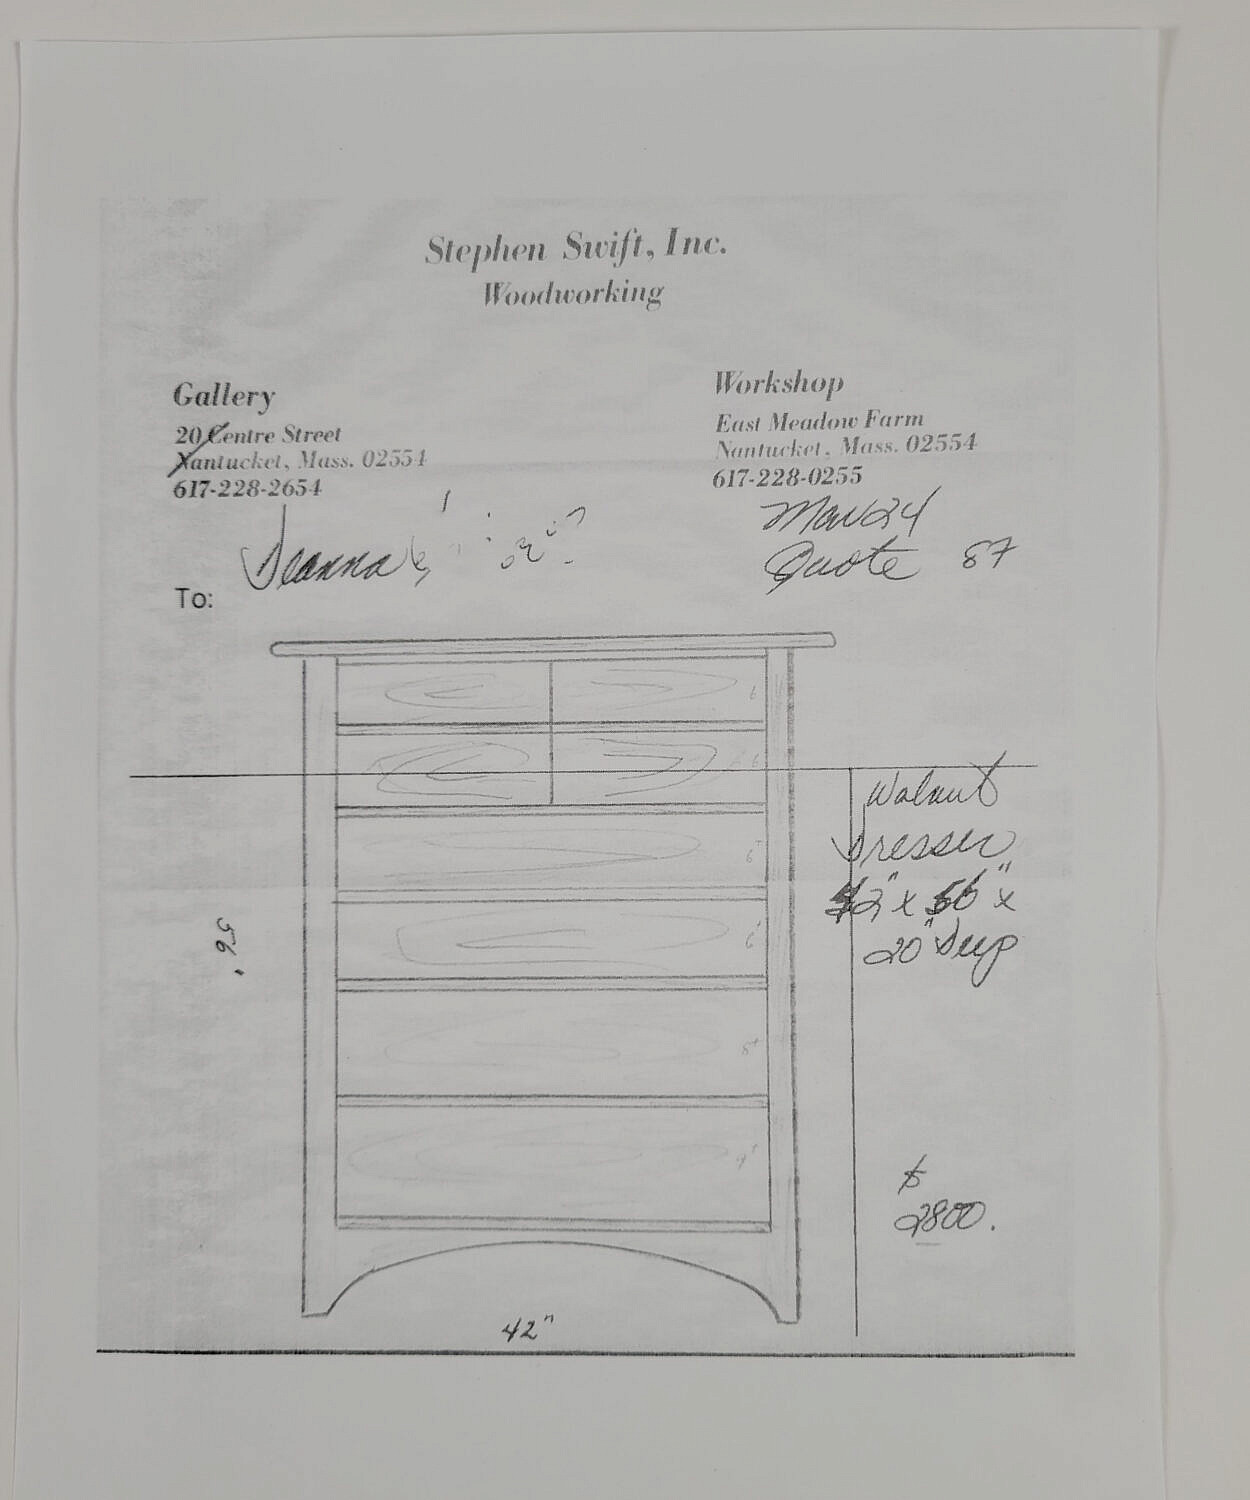 Stephen Swift, Inc.
Woodworking
Gallery
20 Centre Street
Nantucket, Mass. 02554
617-228-2654
Workshop
East Meadow Farm
Nantucket, Mass. 02554
617-228-0255
24
Quote 87
Deanna
To:
6
6
6"
6"
8"
9"
Walnut
Dresser
42" x 56" x
20" Deep
56"
$
2800.
42"